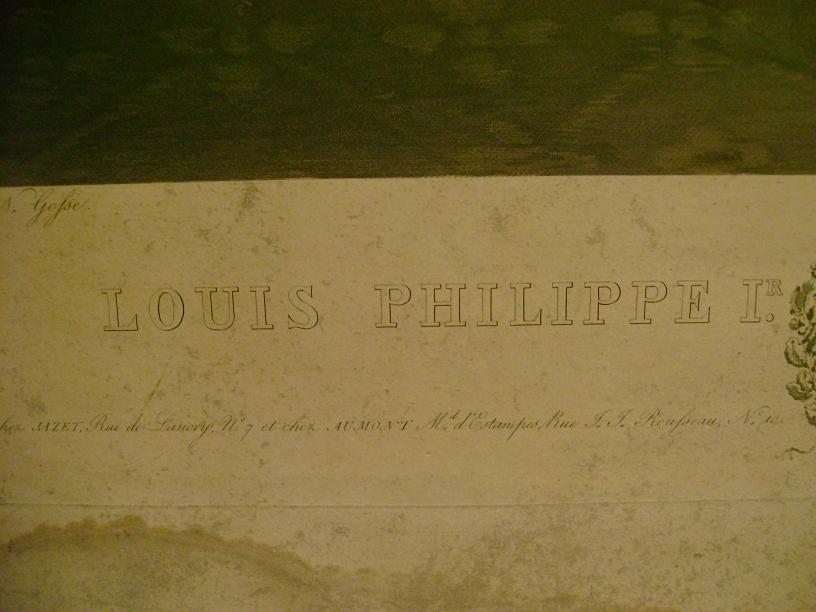 N. Gosse.
LOUIS PHILIPPE Iᴿ.
chez JAZET, Rue de Lancry, Nº 7 et chez AUMONT Mᵈ d'Estampes, Rue J. J. Rousseau, Nº 10.